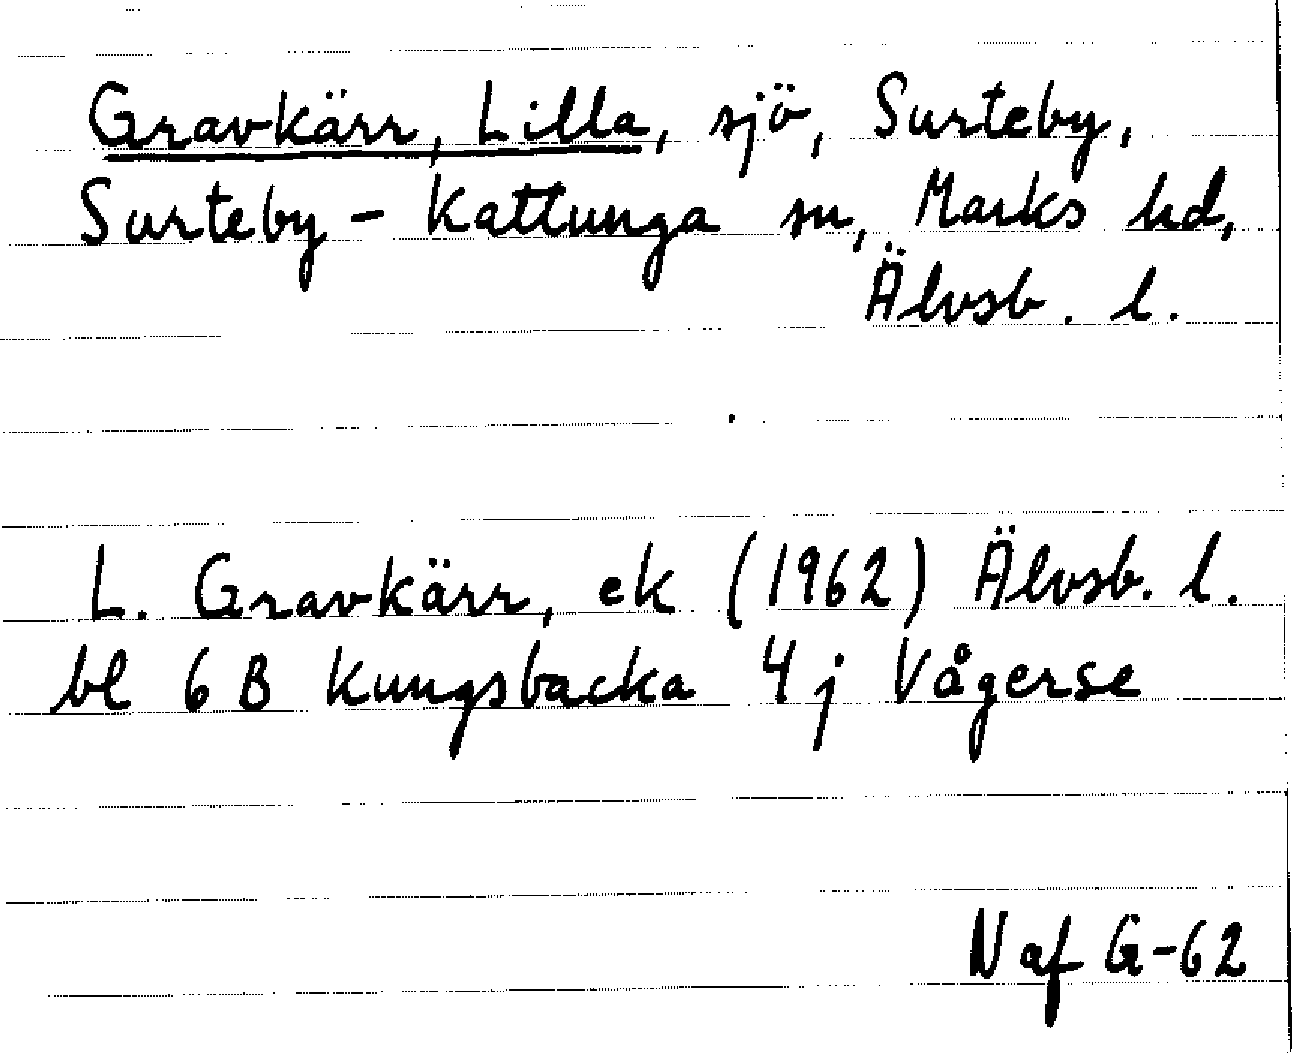 Gravkärr, Lilla, sjö, Surteby,
Surteby - Kattunga sn, Marks hd,
Älvsb. l.
L. Gravkärr, ek (1962) Älvsb. l.
bl 6 B Kungsbacka 4 j Vågerse
N af G-62